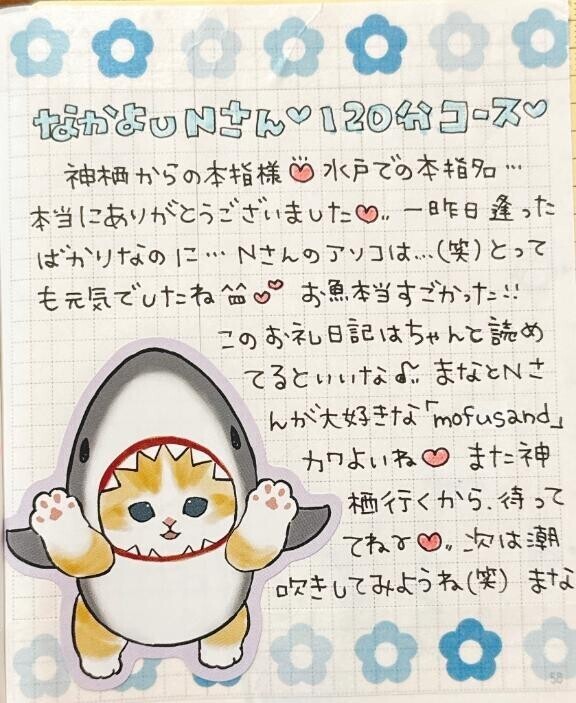 なかよしNさん♡120分コース♡
神栖からの本指様❤水戸での本指名…
本当にありがとうございました❤‥一昨日逢った
ばかりなのに…Nさんのアソコは…(笑)とって
も元気でしたね💕お魚本当すごかった!!
このお礼日記はちゃんと読め
てるといいな♪‥まなとNさ
んが大好きな「mofusand」
カワよいね❤また神
栖行くから、待って
てねɤ❤‥次は潮
吹きしてみようね(笑)まな
58